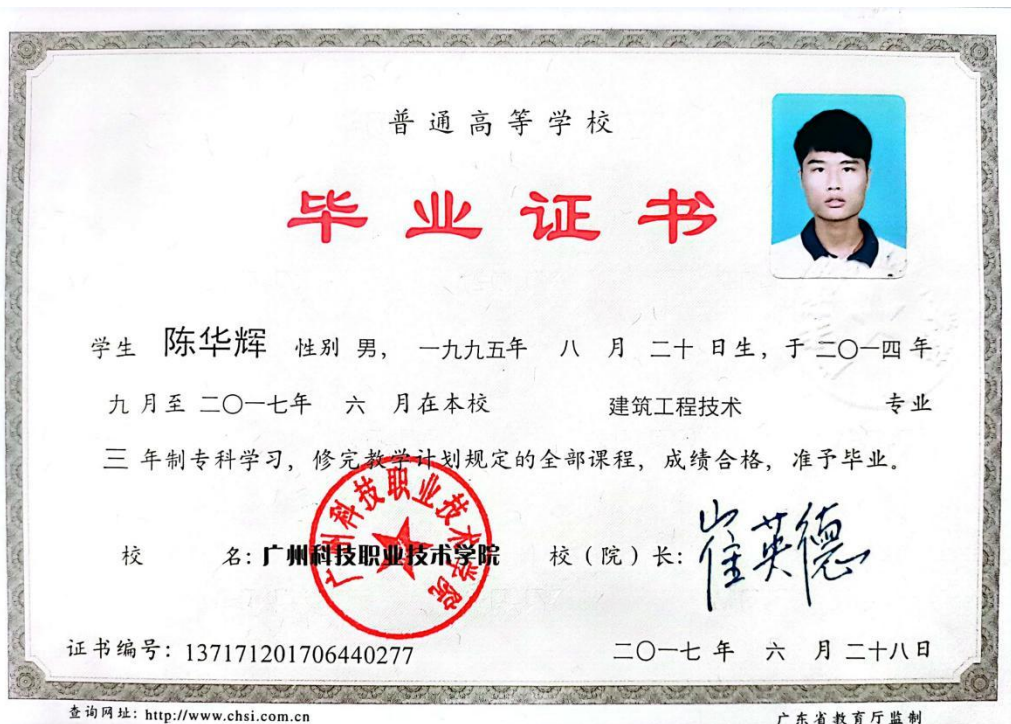 普通高等学校
毕业证书
学生 陈华辉 性别 男， 一九九五年 八 月 二十 日生，于 二〇一四 年
九 月至 二〇一七年 六 月在本校 建筑工程技术 专业
三 年制专科学习，修完教学计划规定的全部课程，成绩合格，准予毕业。
广州科技职业技术学院
校 名：广州科技职业技术学院 校（院）长：崔英德
证书编号：137171201706440277 二〇一七 年 六 月 二十八日
查询网址：http://www.chsi.com.cn 广东省教育厅监制